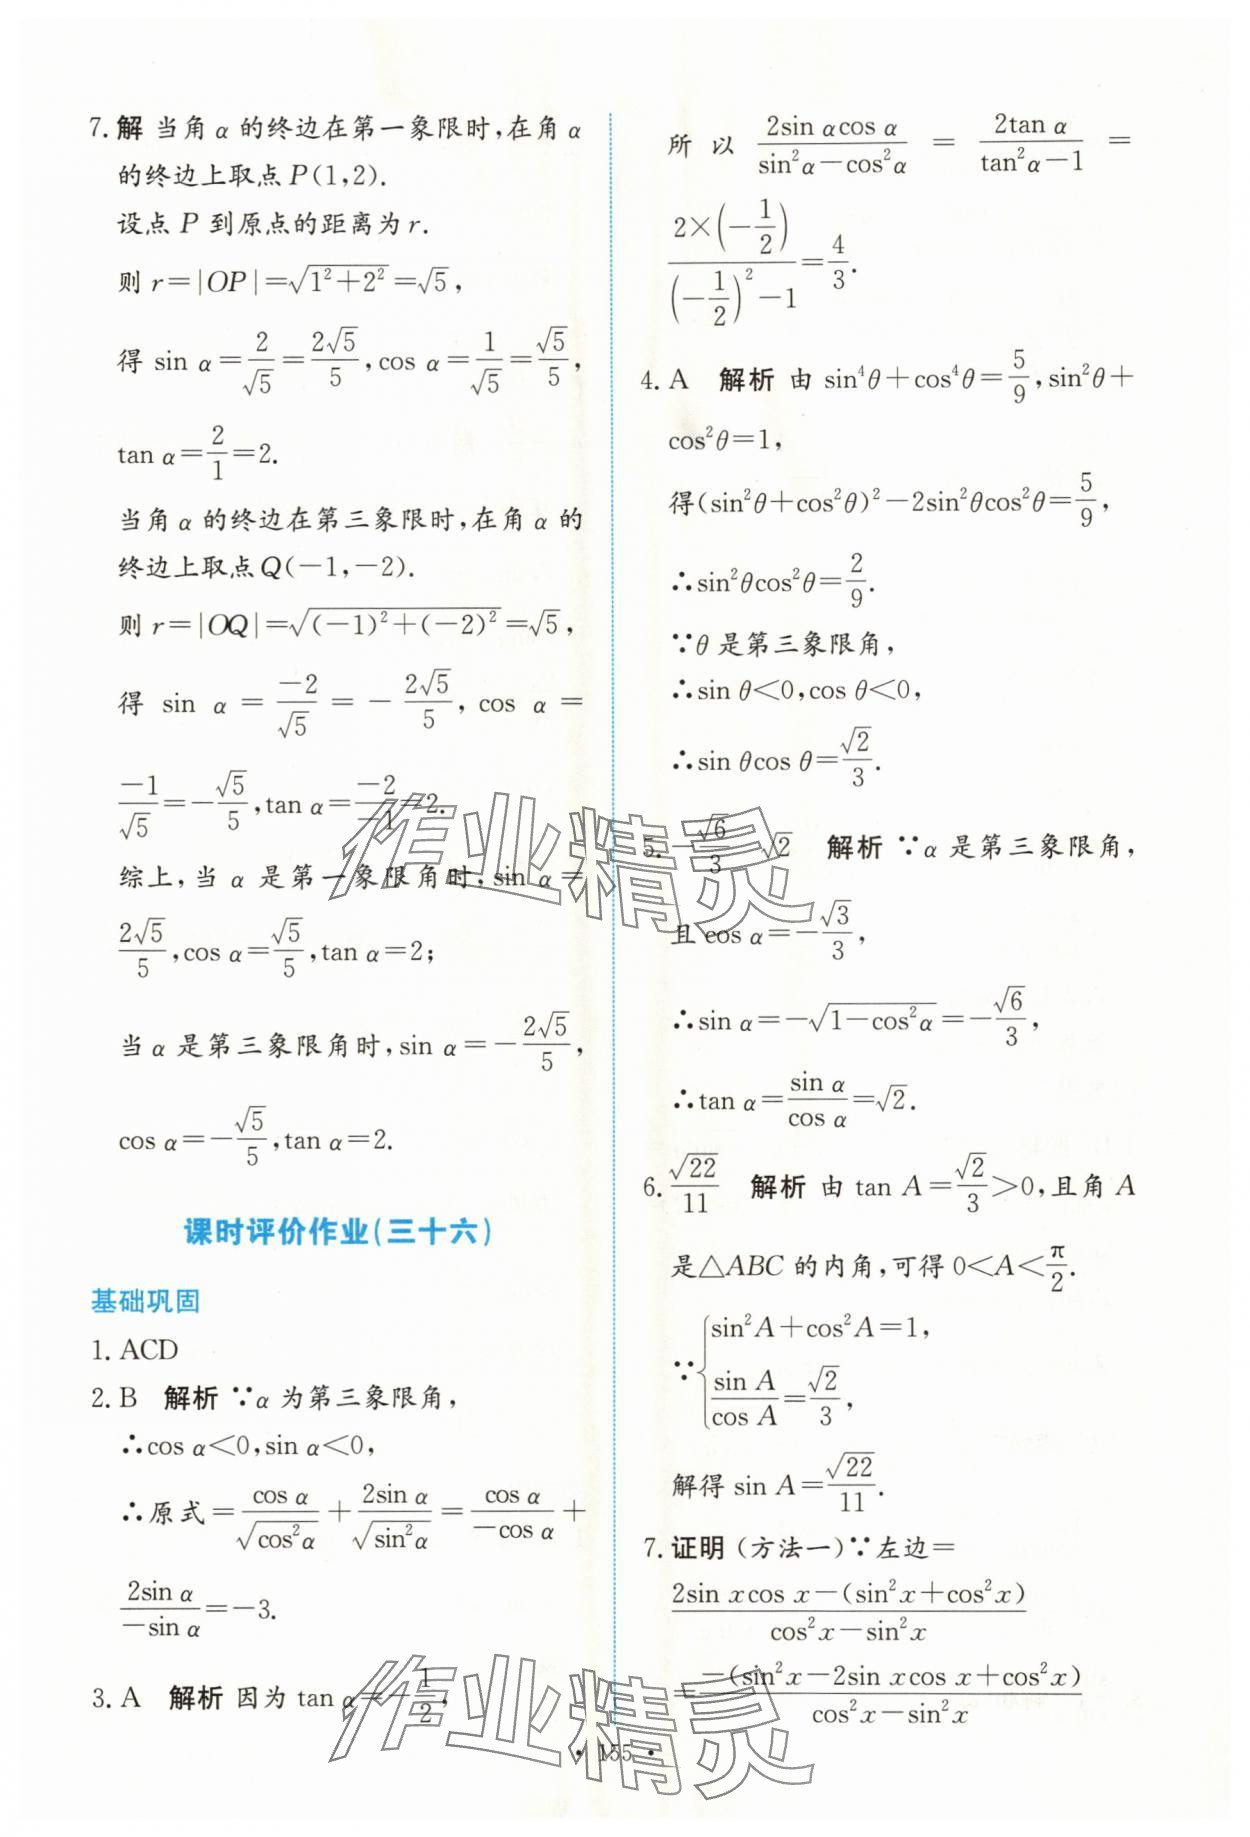 7. 解 当角 α 的终边在第一象限时,在角 α
的终边上取点 P(1,2).
设点 P 到原点的距离为 r.
则 r=|OP|=√(1²+2²)=√5,
得 sin α=2/√5=2√5/5,cos α=1/√5=√5/5,
tan α=2/1=2.
当角 α 的终边在第三象限时,在角 α 的
终边上取点 Q(-1,-2).
则 r=|OQ|=√((-1)²+(-2)²)=√5,
得 sin α=-2/√5=-2√5/5,cos α=
-1/√5=-√5/5,tan α=-2/-1=2.
综上,当 α 是第一象限角时,sin α=
2√5/5,cos α=√5/5,tan α=2;
当 α 是第三象限角时,sin α=-2√5/5,
cos α=-√5/5,tan α=2.
课时评价作业(三十六)
基础巩固
1. ACD
2. B 解析 ∵α 为第三象限角,
∴cos α<0,sin α<0,
∴原式=cos α/√(cos²α)+2sin α/√(sin²α)=cos α/-cos α+
2sin α/-sin α=-3.
3. A 解析 因为 tan α=-1/2,
所以 2sin αcos α/(sin²α-cos²α)=2tan α/(tan²α-1)=
2×(-1/2)/((-1/2)²-1)=4/3.
4. A 解析 由 sin⁴θ+cos⁴θ=5/9,sin²θ+
cos²θ=1,
得(sin²θ+cos²θ)²-2sin²θcos²θ=5/9,
∴sin²θcos²θ=2/9.
∵θ 是第三象限角,
∴sin θ<0,cos θ<0,
∴sin θcos θ=√2/3.
5. -√6/3 √2 解析 ∵α 是第三象限角,
且 cos α=-√3/3,
∴sin α=-√(1-cos²α)=-√6/3,
∴tan α=sin α/cos α=√2.
6. √22/11 解析 由 tan A=√2/3>0,且角 A
是△ABC 的内角,可得 0<A<π/2.
∵{sin²A+cos²A=1,
sin A/cos A=√2/3,
解得 sin A=√22/11.
7. 证明 (方法一)∵左边=
(2sin xcos x-(sin²x+cos²x))/(cos²x-sin²x)
=-(sin²x-2sin xcos x+cos²x)/(cos²x-sin²x)
• 155 •
作业精灵
作业精灵